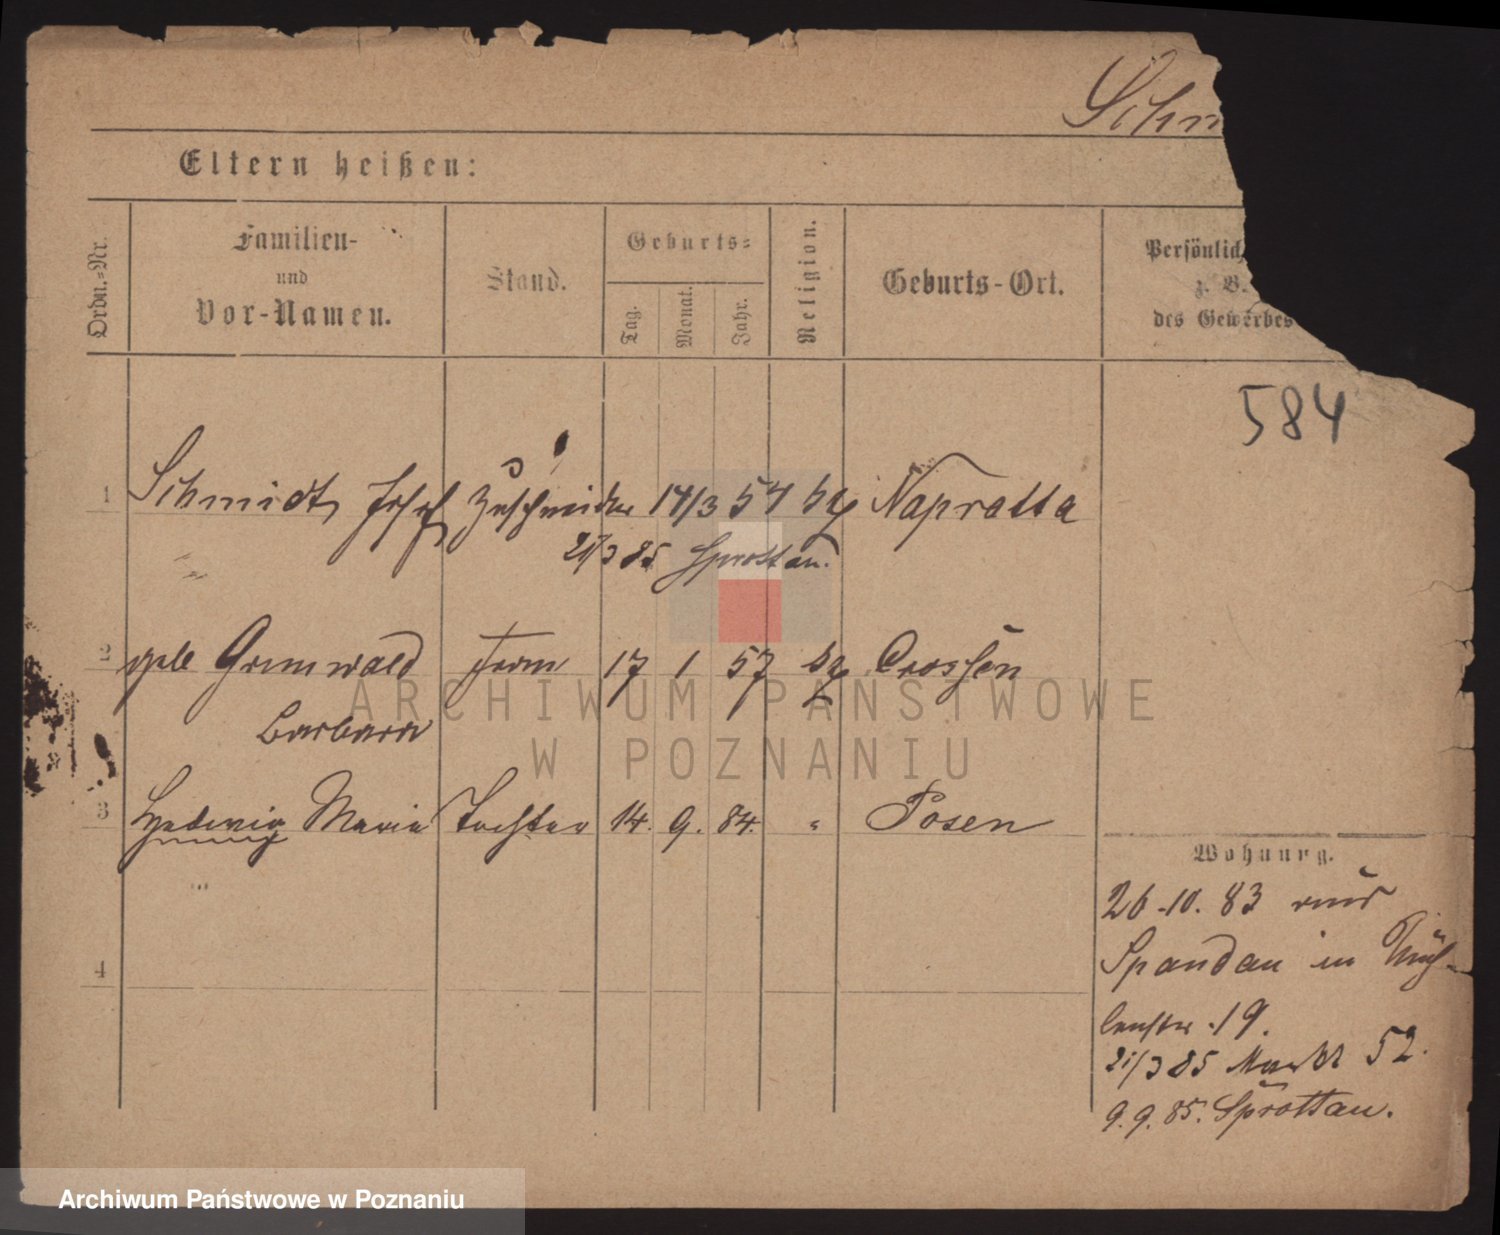 Schm
Eltern heißen:
Ordn.-Nr.
Familien-
und
Vor-Namen.
Stand.
Geburts-
Tag.
Monat.
Jahr.
Religion.
Geburts-Ort.
Persönlich
z. B.
des Gewerbes
584
1 Schmidt, Josef Zuschneider 14/3 54 Napratta
21/3 85 Sprottau.
2 geb Grunwald Frau 17 1 57 Crossen
Barbara
3 Hedwig Maria Tochter 14. 9. 84. " Posen
4
Wohnung.
26.10.83 aus
Spandau in Müh-
lenstr. 19.
21/3 85 Markt 52.
9.9.85. Sprottau.
ARCHIWUM PAŃSTWOWE
W POZNANIU
Archiwum Państwowe w Poznaniu